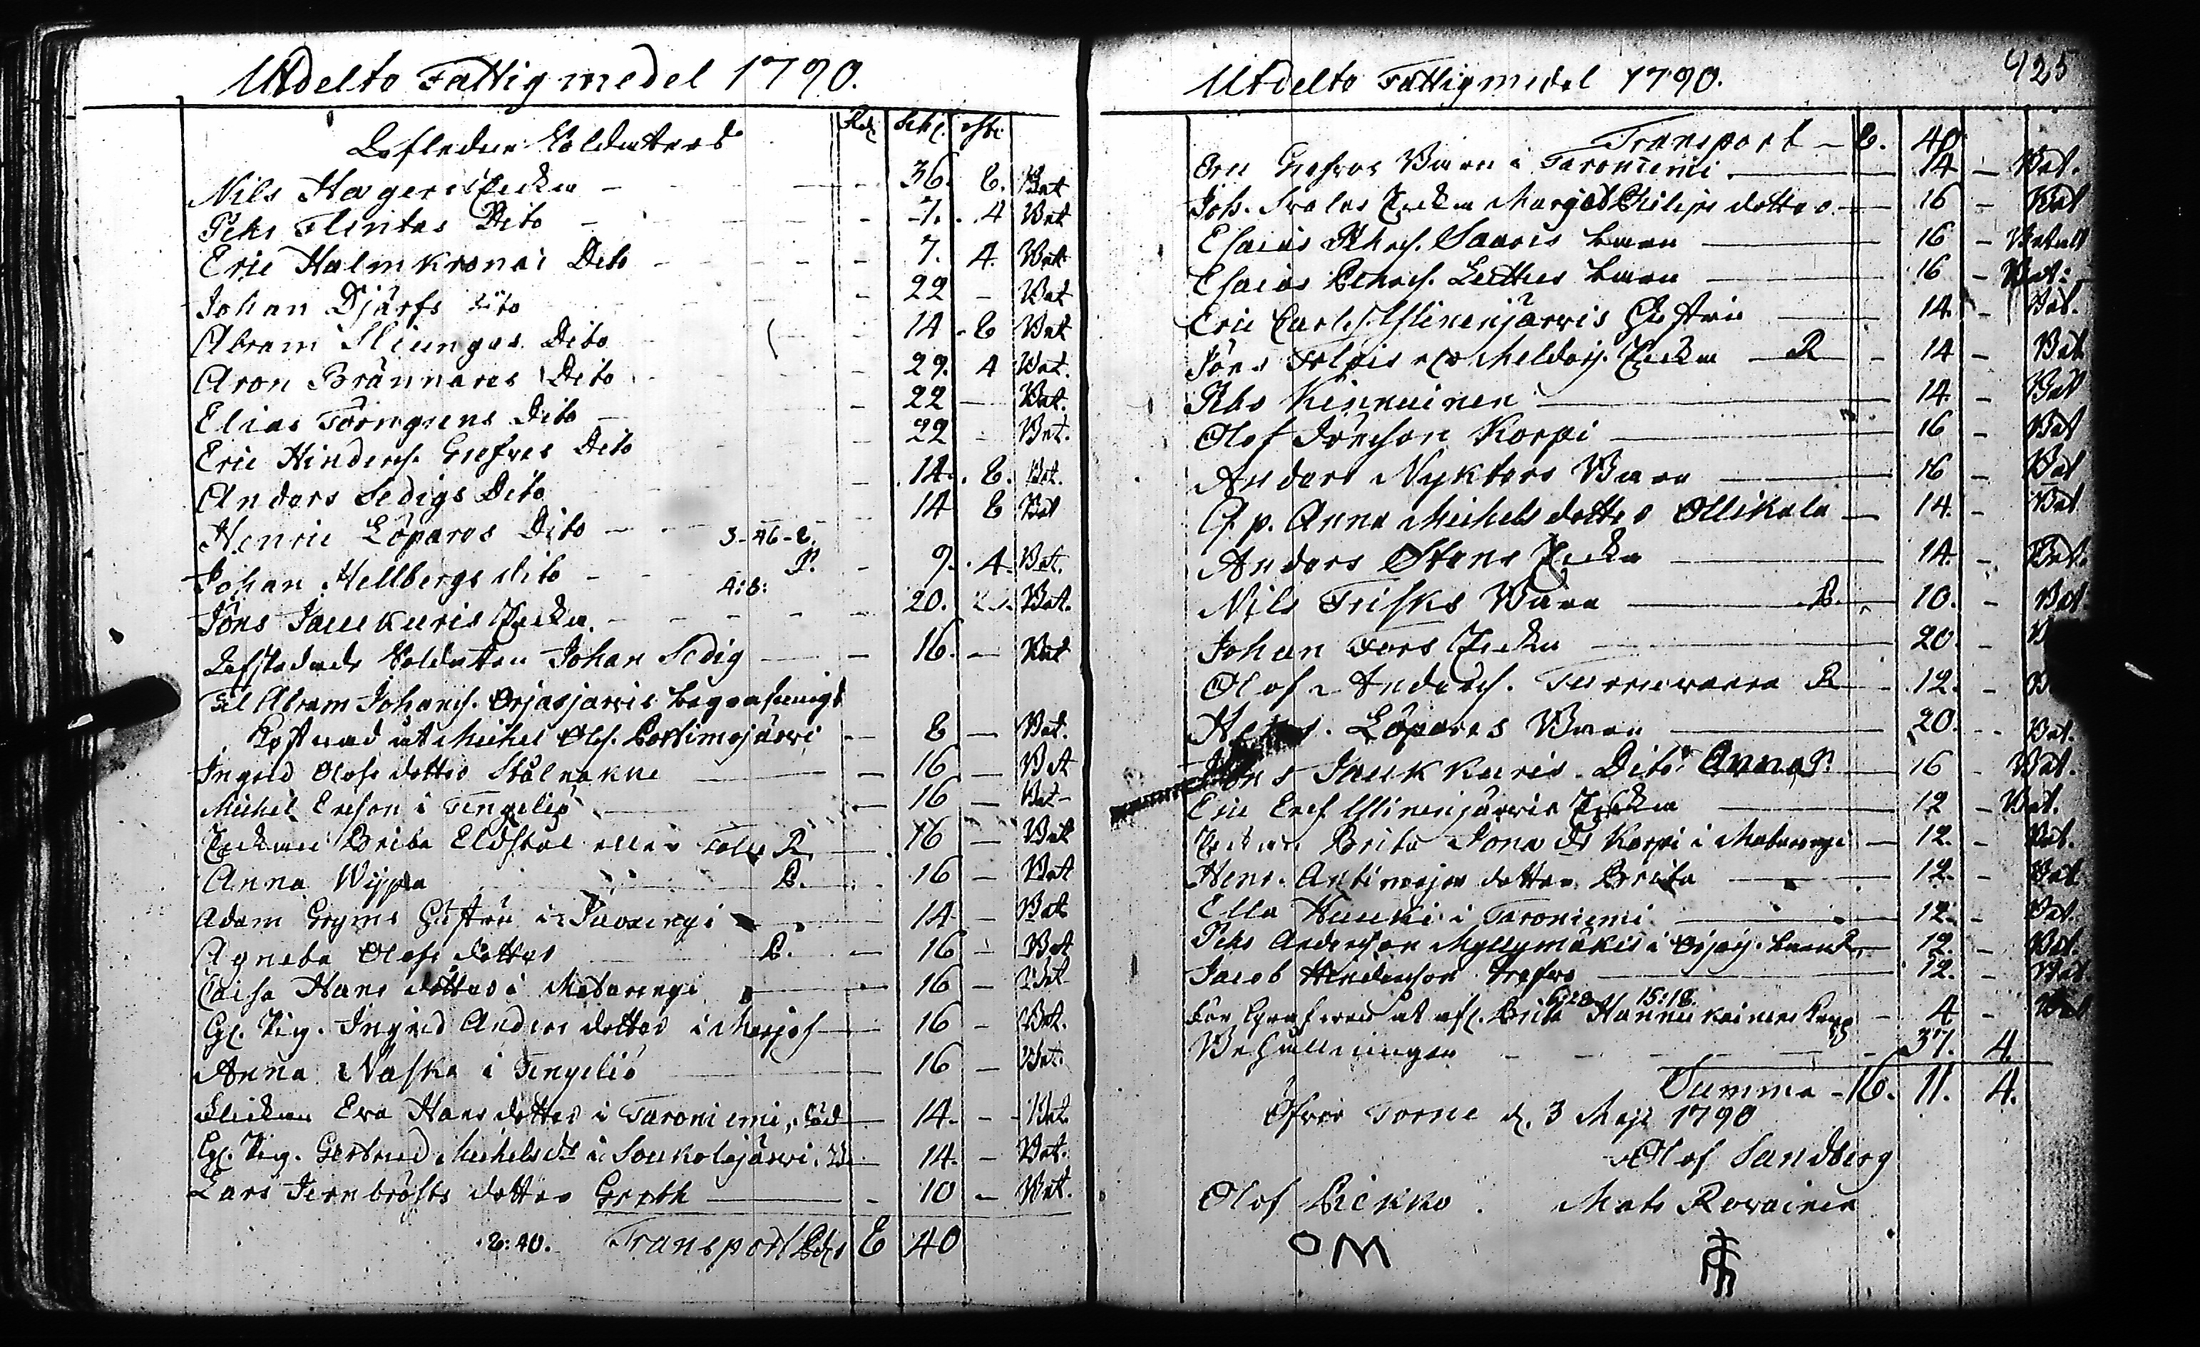 Utdelte Fattigmedel 1790.
Rd. Sch. rst.
Aflednes Soldaters
Nils Hagers Enka - 36. 8. Bet
Pehr Flintas Dito - 7. 4 Bet
Eric Halmkronas Dito - 7. 4. Bet
Johan Djärfs Dito - 22 - Bet
Abram Dito - 14 - 8 Bet
Aron Brännares Dito - 29. 4 Bet.
Elias Törngrens Dito - 22 - Bet.
Eric Hindersf. Grefves Dito - 22 - Bet.
Anders Sedigs Dito - 14. 8. Bet.
Henric Löpares Dito - 3-46-8. 14 8 Bet
Johan Hellbergs dito - P. - 9. 4. Bet.
Jöns Jaukkuris Enka. 4:6: 20. Bet.
Soldaten Johan Sedig - 16. - Bet
Til Abram Johansf. Orjasjärvis begrafnings
Kostnad åt Michel Olsf. Portimojärvi - 8 - Bet.
Ingrid Olofs dotter Stålnakke - 16 - Bet
Michel Ericson i Tengeliö - 16 - Bet
Enkan Brita Eldstål eller R. 16 - Bet
Anna Wippa R. 16 - Bet
Adam Gryms Hustru i Juoxengi 14 - Bet
Agneta Olofs dotter R. - 16 - Bet
Caisa Hans dotter i Matarengi 16 - Bet
Gl. Pig. Ingrid Anders dotter i Marjos - 16 - Bet.
Anna Naska i Tengeliö 16 - Bet.
Flickan Eva Hans dotter i Taroniemi, - 14. - Bet
Gl. Pig. Gertrud Michelsdr i Soukolojärvi. - 14. - Bet.
Lars Jernbröfts dotter Greth - 10 - Bet.
8:40. Transport Rdr 8 40
Utdelte Fattigmedel 1790.
425
Transport - 8. 40
Eric Grefves Barn i Taroniemi. 14 - Bet.
Joh. Svales Enka Marget Philips dotter - 16 - Bet
Esaias Pehrsf. Saaris barn - 16 - Betalt
Esaias Pehrsf. barn - 16 - Bet:
Eric Carlsf. Ylinenjärvis Hustru - 14. - Bet.
Jöns Enka - R - 14 - Bet
Pehr Kinnuinen - 14. - Bet
Olof Jönsson Korpi - 16 - Bet
Anders Nykters Barn - 16 - Bet
G. p. Anna Michels dotter Ollikala - 14. - Bet
Anders Stens Enka - 14. - Bet.
Nils Frisks Barn - R. 10. - Bet.
Johan Fors Enka - 20. -
Olof Andersf. Turruvaara R - 12. -
Löpares Barn - 20. - Bet.
Jöns Jaukkuris Dito Anna P: 16 - Bet.
Eric Ersf Ylinenjärvis Enka - 12 - Bet.
Brita Jons dr Korpi i Matarengi - 12. - Bet.
Henr. Antimajas dotter Brita - 12. - Bet
Ella Hauki i Taroniemi - 12. - Bet.
Pehr Andersson Myllymäkis i barn R. - 12. - Bet
Jacob Henderson Grefve - 12. - Bet
6:28 15:18.
För Grafven åt afl. Brita Hannukainen - 4 - Bet
Behållningen - 37. 4.
Summa - 16. 11. 4.
Öfver Torne d. 3 Maji 1790
Olof Sandberg
Olof Pickko. Mats Rovainen
OM